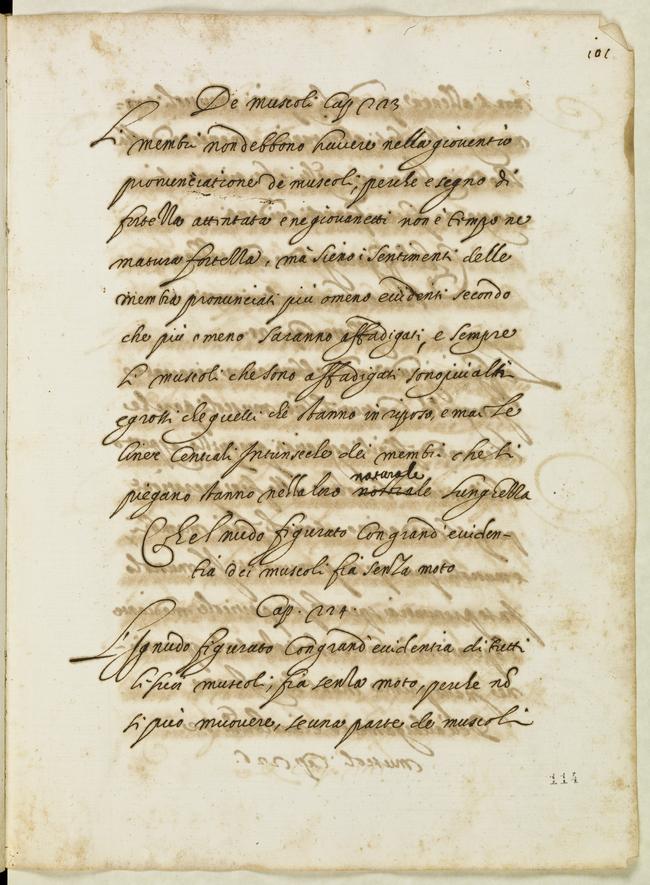 101
De muscoli Cap 223
Li membri non debbono havere nella gioventù
pronunciatione de muscoli, perche e segno di
fortezza attintata e ne giovanetti non e tempo ne
matura fortezza, mà sieno i sentimenti delle
membra pronunciati più o meno evidenti secondo
che più o meno saranno affadigati, e sempre
Li muscoli che sono affadigati sono più alti
e grossi che quelli che stanno in riposo, e mai le
linee Centrali Intrinseche dei membri che si
piegano stanno nella loro naturale lunghezza
Che el nudo figurato Con grand' eviden-
tia dei muscoli fia senza moto
Cap. 224.
L'Ignudo figurato Con grand' evidentia di tutti
li suoi muscoli, fia senza moto, perche nõ
si può muovere, se una parte de muscoli
114